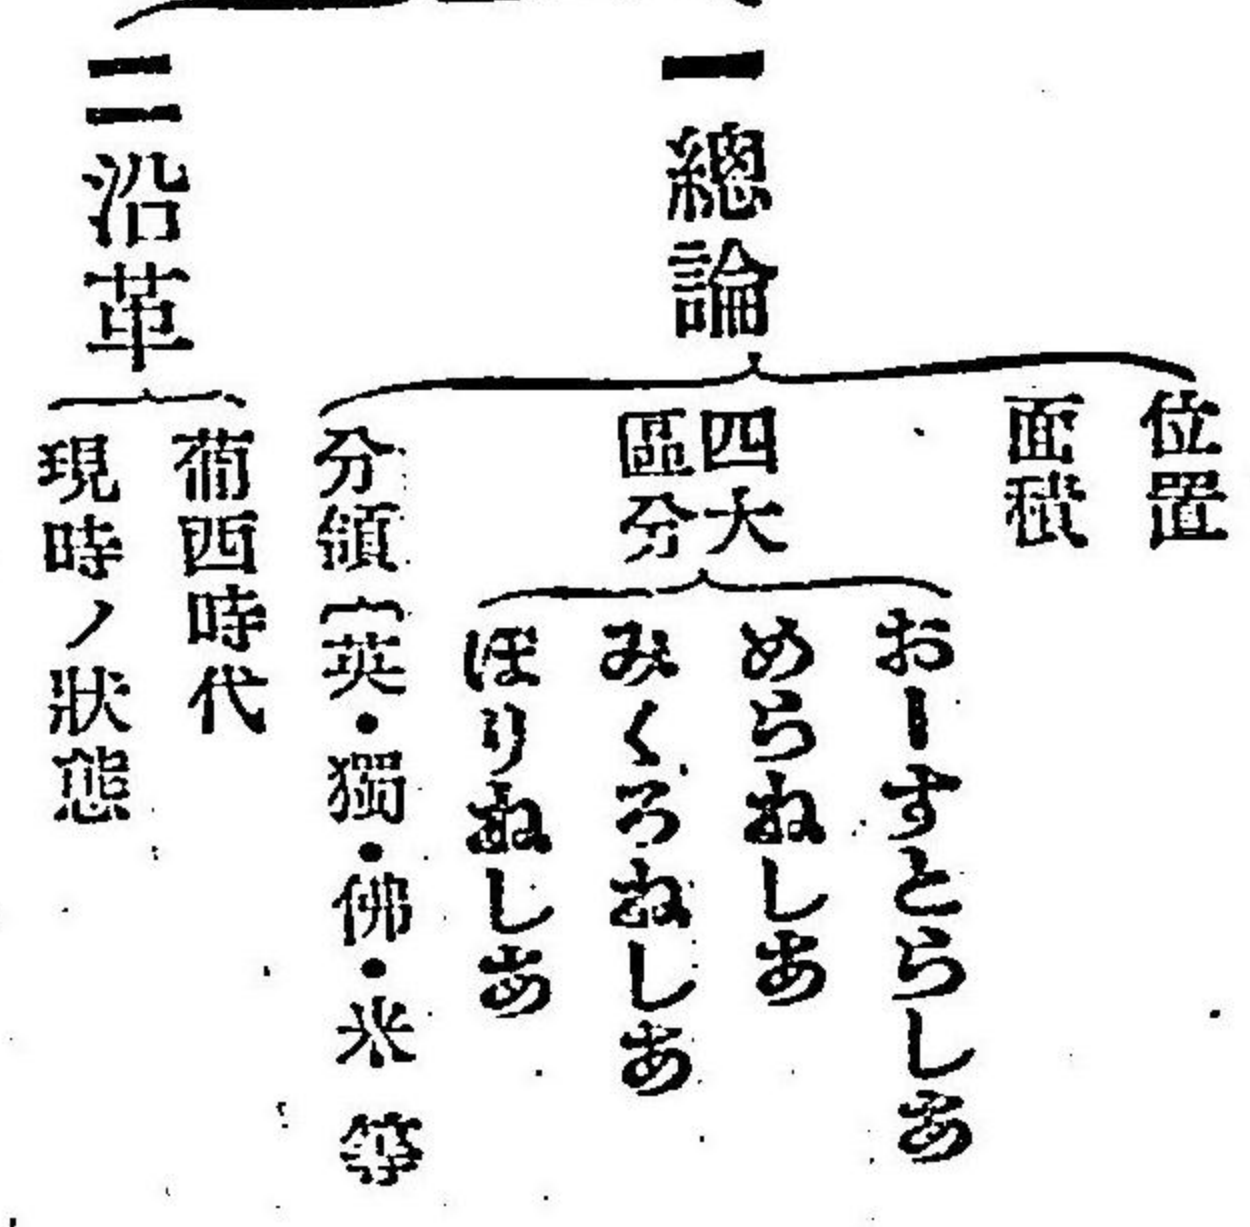 一總論
位置
面積
四大
區分
おーすとらしあ
めらねしあ
みくろねしあ
ほりねしあ
分領
英・獨・佛・米 等
二沿革
葡西時代
現時ノ狀態